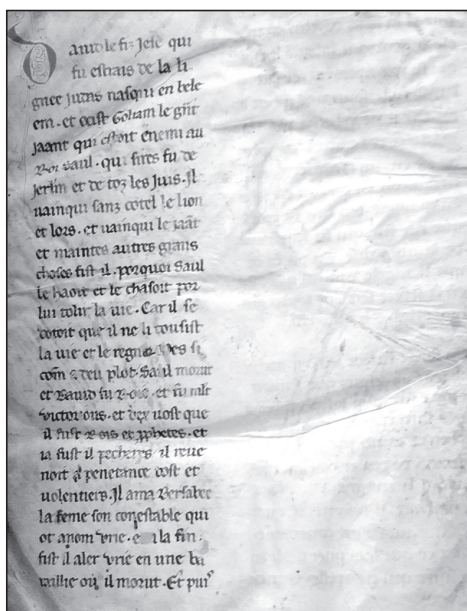 Dauid le fiz Jesse qui
fu estrais de la li
gnee Judas nasqui en bele
em. et ocist Golias le gñt
jaant qui estoit enemi au
Roi Saul. qui sires fu de
Jerłm et de toz les Juis. Jl
uainqui sanz cotel le lion
et lors. et uainqui le jaãt
et maintes autres grans
choses fist il. porquoi Saul
le haoit et le chasoit por
lui tolir la uie. Car il se
dotoit que il ne li tousist
la uie et le regne. Mes si
com a deu plot. Saul morut
et Dauid fu Rois. et fu mlt
victorious. et dex uost que
il fust Rois et pphetes. et
ia fust il pecherres il reue
noit a penetance tost et
uolentiers. Jl ama Bersabee
la feme son conestable qui
ot anom Vrie. e la fin
fist il aler vrie en une ba
taille ou il morut. Et puis